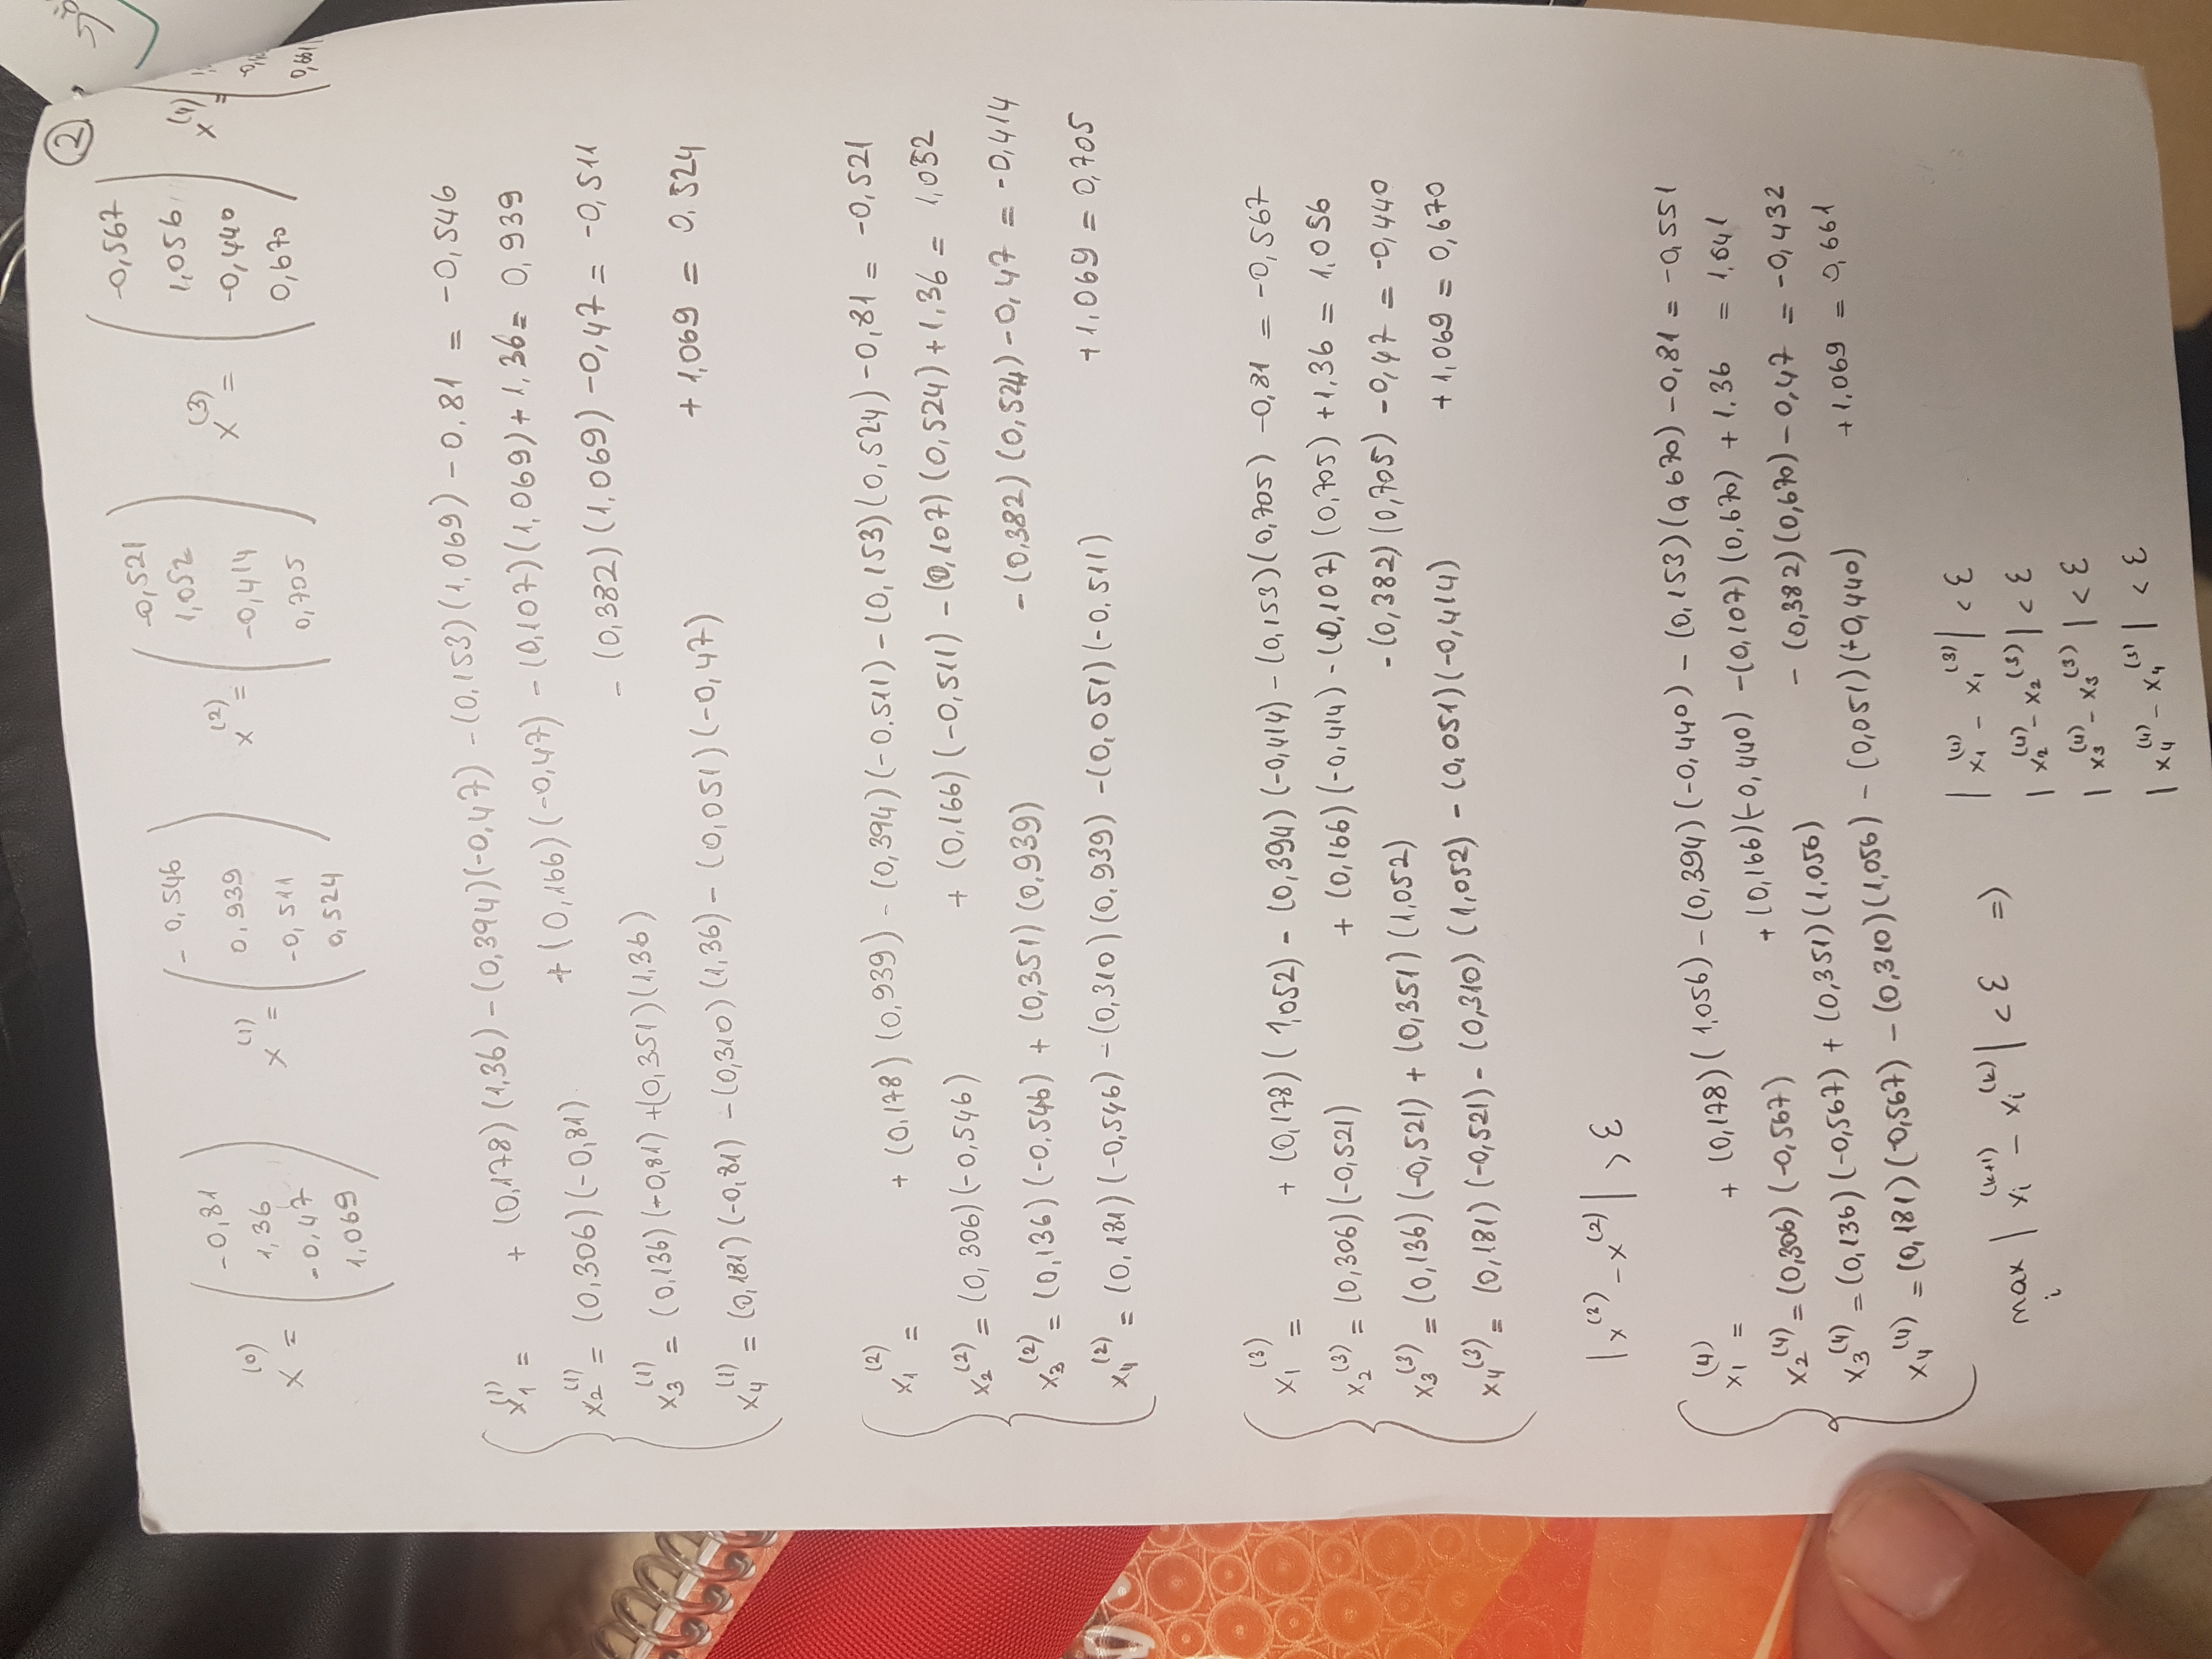 ②
x^(0) = ( -0,81 1,36 -0,47 1,069 ) x^(1) = ( -0,546 0,939 -0,511 0,524 ) x^(2) = ( -0,521 1,052 -0,414 0,705 ) x^(3) = ( -0,567 1,056 -0,440 0,670 ) x^(4) = ( 0,661
x₁^(1) = + (0,178)(1,36) - (0,394)(-0,47) - (0,153)(1,069) - 0,81 = -0,546
x₂^(1) = (0,306)(-0,81) + (0,166)(-0,47) - (0,107)(1,069) + 1,36 = 0,939
x₃^(1) = (0,136)(-0,81) + (0,351)(1,36) - (0,382)(1,069) - 0,47 = -0,511
x₄^(1) = (0,181)(-0,81) - (0,310)(1,36) - (0,051)(-0,47) + 1,069 = 0.524
x₁^(2) = + (0,178)(0,939) - (0,394)(-0.511) - (0,153)(0,524) - 0,81 = -0,521
x₂^(2) = (0,306)(-0,546) + (0,166)(-0,511) - (0,107)(0,524) + 1,36 = 1,052
x₃^(2) = (0,136)(-0,546) + (0,351)(0,939) - (0,382)(0,524) - 0,47 = -0,414
x₄^(2) = (0,181)(-0,546) - (0,310)(0,939) - (0,051)(-0.511) + 1,069 = 0,705
x₁^(3) = + (0,178)(1,052) - (0,394)(-0,414) - (0,153)(0,705) - 0,81 = -0,567
x₂^(3) = (0,306)(-0,521) + (0,166)(-0,414) - (0,107)(0,705) + 1,36 = 1,056
x₃^(3) = (0,136)(-0,521) + (0,351)(1,052) - (0,382)(0,705) - 0,47 = -0,440
x₄^(3) = (0,181)(-0,521) - (0,310)(1,052) - (0,051)(-0,414) + 1,069 = 0,670
| x^(3) - x^(2) | > ε
x₁^(4) = + (0,178)(1,056) - (0,394)(-0,440) - (0,153)(0,670) - 0,81 = -0,551
x₂^(4) = (0,306)(-0,567) + (0,166)(-0,440) - (0,107)(0,670) + 1.36 = 1,041
x₃^(4) = (0,136)(-0,567) + (0,351)(1,056) - (0,382)(0,670) - 0,47 = -0,432
x₄^(4) = (0,181)(-0,567) - (0,310)(1,056) - (0,051)(-0,440) + 1,069 = 0,661
max i | xᵢ^(k+1) - xᵢ^(k) | < ε => | x₁^(4) - x₁^(3) | < ε
| x₂^(4) - x₂^(3) | < ε
| x₃^(4) - x₃^(3) | < ε
| x₄^(4) - x₄^(3) | < ε